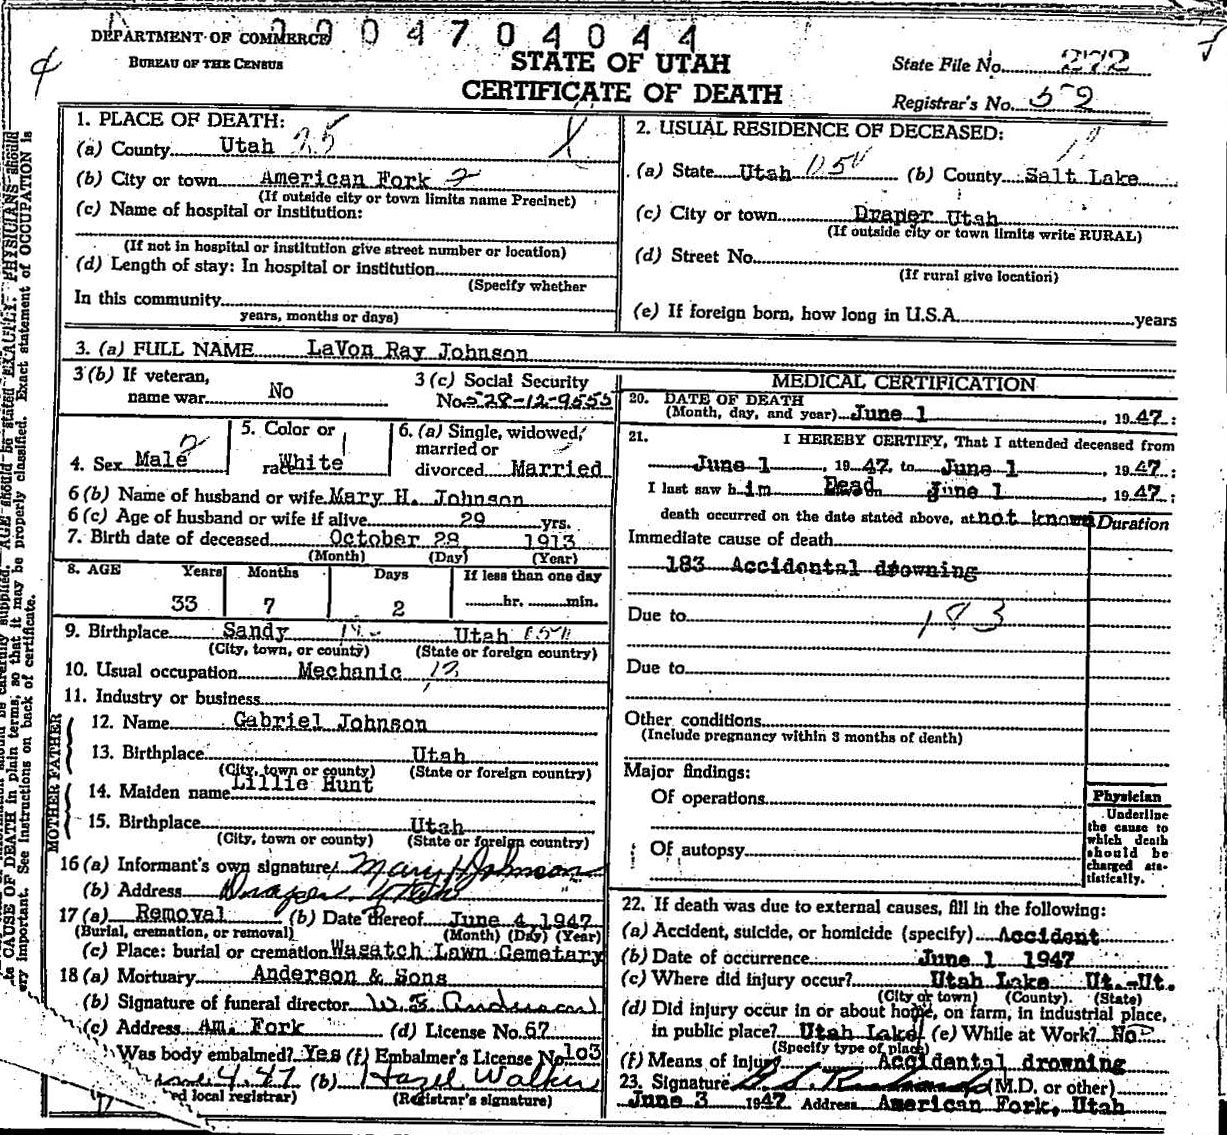 2004704044
DEPARTMENT OF COMMERCE
BUREAU OF THE CENSUS
STATE OF UTAH
CERTIFICATE OF DEATH
State File No. 272
Registrar's No. 52
1. PLACE OF DEATH:
(a) County Utah 25
(b) City or town American Fork 2
(If outside city or town limits name Precinct)
(c) Name of hospital or institution:
(If not in hospital or institution give street number or location)
(d) Length of stay: In hospital or institution
(Specify whether
In this community
years, months or days)
2. USUAL RESIDENCE OF DECEASED:
(a) State Utah (b) County Salt Lake
(c) City or town Draper Utah
(If outside city or town limits write RURAL)
(d) Street No.
(If rural give location)
(e) If foreign born, how long in U.S.A. years
3. (a) FULL NAME LaVon Ray Johnson
3 (b) If veteran,
name war No
3 (c) Social Security
No. 528-12-9555
4. Sex Male
5. Color or
race White
6. (a) Single, widowed,
married or
divorced Married
6 (b) Name of husband or wife Mary H. Johnson
6 (c) Age of husband or wife if alive 29 yrs.
7. Birth date of deceased October 28 1913
(Month) (Day) (Year)
8. AGE Years Months Days If less than one day
33 7 2 hr. min.
9. Birthplace Sandy Utah
(City, town, or county) (State or foreign country)
10. Usual occupation Mechanic
11. Industry or business
FATHER
12. Name Gabriel Johnson
13. Birthplace Utah
(City, town or county) (State or foreign country)
MOTHER
14. Maiden name Lillie Hunt
15. Birthplace Utah
(City, town or county) (State or foreign country)
16 (a) Informant's own signature Mary H Johnson
(b) Address Draper Utah
17 (a) Removal (b) Date thereof June 4, 1947
(Burial, cremation, or removal) (Month) (Day) (Year)
(c) Place: burial or cremation Wasatch Lawn Cemetary
18 (a) Mortuary Anderson & Sons
(b) Signature of funeral director W. E. Anderson
(c) Address Am. Fork (d) License No. 67
Was body embalmed? Yes (f) Embalmer's License No. 103
4.47 (b) Hazel Walker
local registrar) (Registrar's signature)
MEDICAL CERTIFICATION
20. DATE OF DEATH
(Month, day, and year) June 1, 1947:
21. I HEREBY CERTIFY, That I attended deceased from
June 1, 1947, to June 1, 1947:
I last saw him Dead June 1, 1947:
death occurred on the date stated above, at not known Duration
Immediate cause of death
183 Accidental drowning
Due to 183
Due to
Other conditions
(Include pregnancy within 3 months of death)
Major findings:
Of operations
Of autopsy
Physician
Underline
the cause to
which death
should be
charged sta-
tistically.
22. If death was due to external causes, fill in the following:
(a) Accident, suicide, or homicide (specify) Accident
(b) Date of occurrence June 1 1947
(c) Where did injury occur? Utah Lake Ut.-Ut.
(City or town) (County). (State)
(d) Did injury occur in or about home, on farm, in industrial place,
in public place? Utah Lake (e) While at Work? No
(Specify type of place)
(f) Means of injury Accidental drowning
23. Signature (M.D. or other)
June 3 1947 Address American Fork, Utah